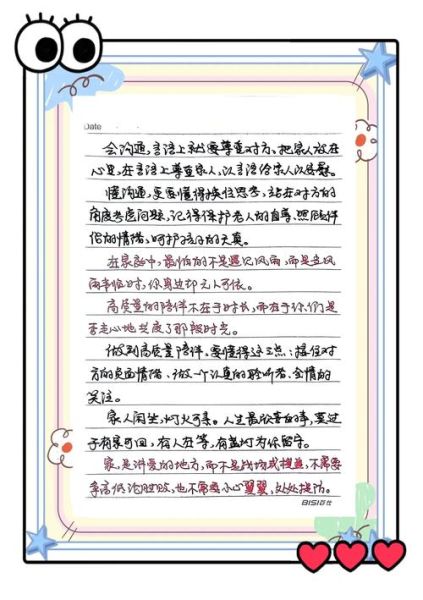 Date
会沟通,言语上就要尊重对方、把家人放在
心里,在言语上尊重家人,以言语给家人以安慰。
懂沟通,更要懂得换位思考,站在对方的
角度考虑问题,记得保护老人的自尊,照顾伴
侣的情绪,呵护孩子的天真。
在家庭中,最怕的不是遇见风雨,而是当风
雨来临时,你身边却无人可依。
高质量的陪伴不在于时长,而在于你们是
否走心地共度了那段时光。
做到高质量陪伴,要懂得这三点:接住对
方的负面情绪、做一个认真的聆听者、全情的
关注。
家人闲坐,灯火可亲。人生最欣喜的事,莫过
于有家可回,有人在等,有盏灯为你留守。
家,是讲爱的地方,而不是战场或擂台,不需要
争高低论胜败,也不需要小心翼翼,处处提防。
BISI百仕